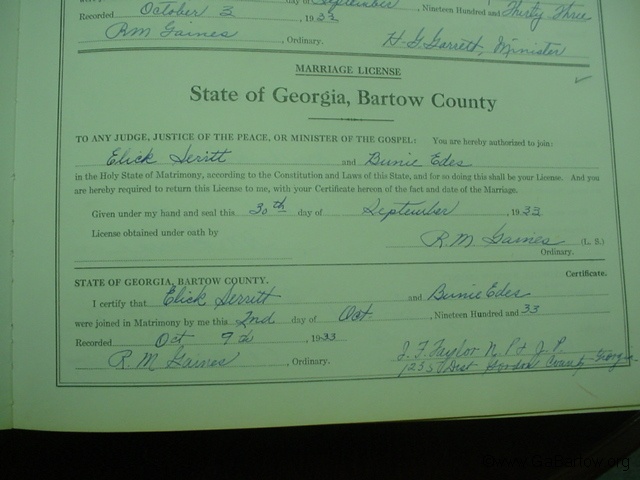 day of September , Nineteen Hundred and Thirty Three
Recorded October 3 , 1933
RM Gaines , Ordinary. H. G. Garrett, Minister
MARRIAGE LICENSE
State of Georgia, Bartow County
TO ANY JUDGE, JUSTICE OF THE PEACE, OR MINISTER OF THE GOSPEL: You are hereby authorized to join:
Elick Serritt and Bunie Edes
in the Holy State of Matrimony, according to the Constitution and Laws of this State, and for so doing this shall be your License. And you
are hereby required to return this License to me, with your Certificate hereon of the fact and date of the Marriage.
Given under my hand and seal this 30th day of September , 1933
License obtained under oath by
R M Gaines (L. S.)
Ordinary.
Certificate.
STATE OF GEORGIA, BARTOW COUNTY.
I certify that Elick Serritt and Bunie Edes
were joined in Matrimony by me this 2nd day of Oct. , Nineteen Hundred and 33
Recorded Oct 9 , 1933
R. M Gaines , Ordinary. J. F. Taylor N. P. & J. P.
1235 Dist Gordon County Georgia